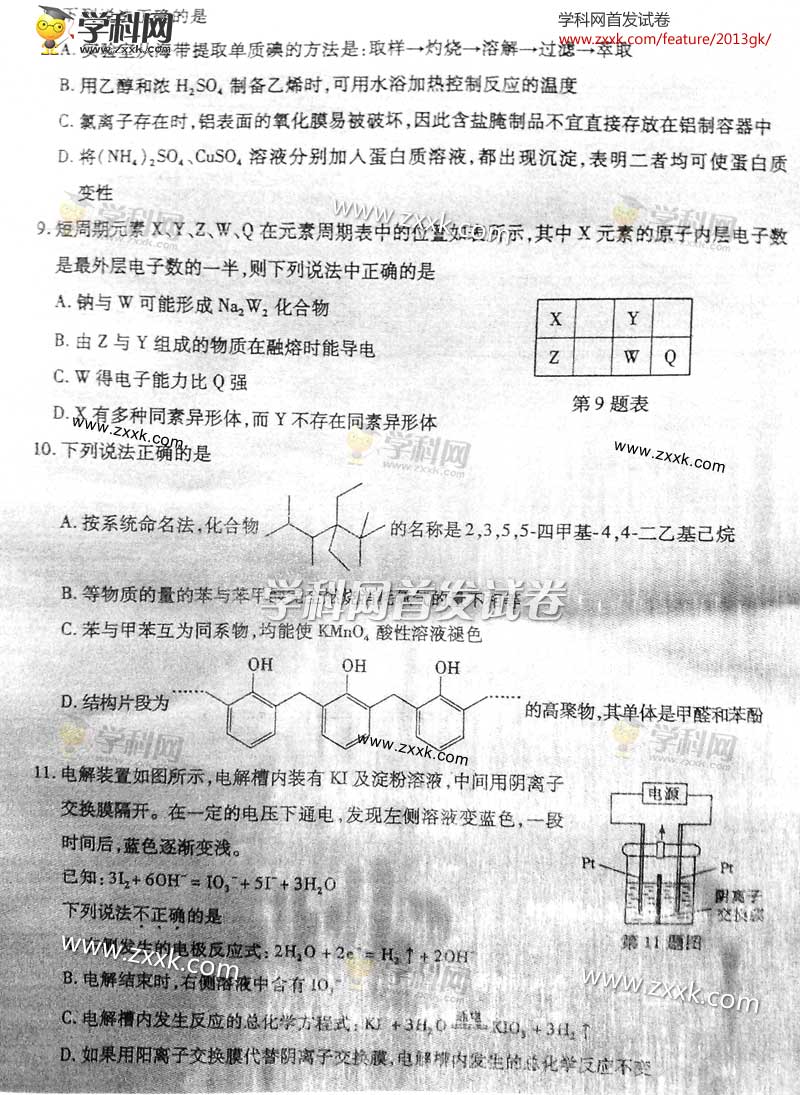 学科网
学科网首发试卷
www.zxxk.com/feature/2013gk/
下列说法正确的是
A. 实验室从海带提取单质碘的方法是:取样→灼烧→溶解→过滤→萃取
B. 用乙醇和浓 H₂SO₄ 制备乙烯时,可用水浴加热控制反应的温度
C. 氯离子存在时,铝表面的氧化膜易被破坏,因此含盐腌制品不宜直接存放在铝制容器中
D. 将(NH₄)₂SO₄、CuSO₄ 溶液分别加入蛋白质溶液,都出现沉淀,表明二者均可使蛋白质
变性
学科网
www.zxxk.com
学科网
9. 短周期元素 X、Y、Z、W、Q 在元素周期表中的位置如表所示,其中 X 元素的原子内层电子数
是最外层电子数的一半,则下列说法中正确的是
A. 钠与 W 可能形成 Na₂W₂ 化合物
B. 由 Z 与 Y 组成的物质在融熔时能导电
C. W 得电子能力比 Q 强
D. X 有多种同素异形体,而 Y 不存在同素异形体
X Y
Z W Q
第 9 题表
www.zxxk.com
学科网
www.zxxk.com
10. 下列说法正确的是
A. 按系统命名法,化合物 的名称是 2,3,5,5-四甲基-4,4-二乙基己烷
B. 等物质的量的苯与苯甲
学科网首发试卷
C. 苯与甲苯互为同系物,均能使 KMnO₄ 酸性溶液褪色
OH OH OH
D. 结构片段为 的高聚物,其单体是甲醛和苯酚
学科网
www.zxxk.com
学科网
11. 电解装置如图所示,电解槽内装有 KI 及淀粉溶液,中间用阴离子
交换膜隔开。在一定的电压下通电,发现左侧溶液变蓝色,一段
时间后,蓝色逐渐变浅。
已知:3I₂+6OH⁻=IO₃⁻+5I⁻+3H₂O
下列说法不正确的是
电源
Pt
Pt
阴离子
交换膜
第 11 题图
侧发生的电极反应式:2H₂O+2e⁻=H₂↑+2OH⁻
www.zxxk.com
学科网
www.zxxk.com
B. 电解结束时,右侧溶液中含有 IO₃⁻
C. 电解槽内发生反应的总化学方程式:KI+3H₂O 通电 KIO₃+3H₂↑
D. 如果用阳离子交换膜代替阴离子交换膜,电解槽内发生的总化学反应不变